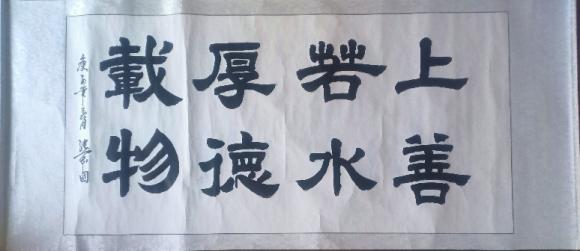 上善
若水
厚德
載物
庚子年